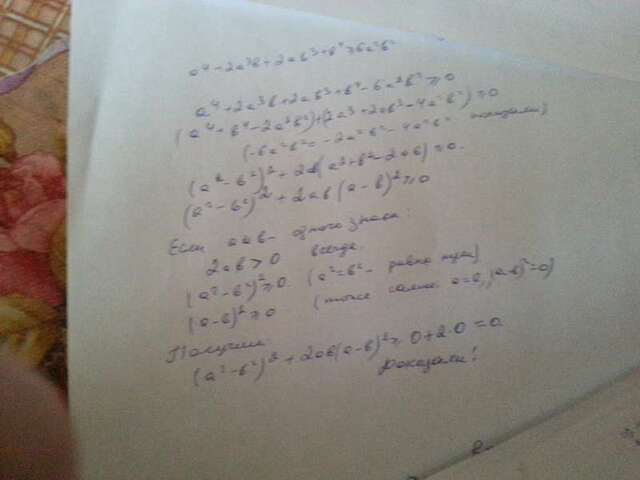 a⁴+2a³b+2ab³+b⁴≥6a²b²
a⁴+2a³b+2ab³+b⁴-6a²b²≥0
(a⁴+b⁴-2a²b²)+(2a³+2ab³-4a²b²)≥0
(-6a²b²=-2a²b²-4a²b²
(a²-b²)²+2ab(a²+b²-2ab)≥0.
(a²-b²)²+2ab(a-b)²≥0
Если a и b - одного знака:
2ab>0 всегда.
(a²-b²)²≥0. (a²=b² - равно нулю)
(a-b)²≥0 (тоже самое a=b, (a-b)²=0)
Получим:
(a²-b²)²+2ab(a-b)²≥0+2·0=0.
Доказали!